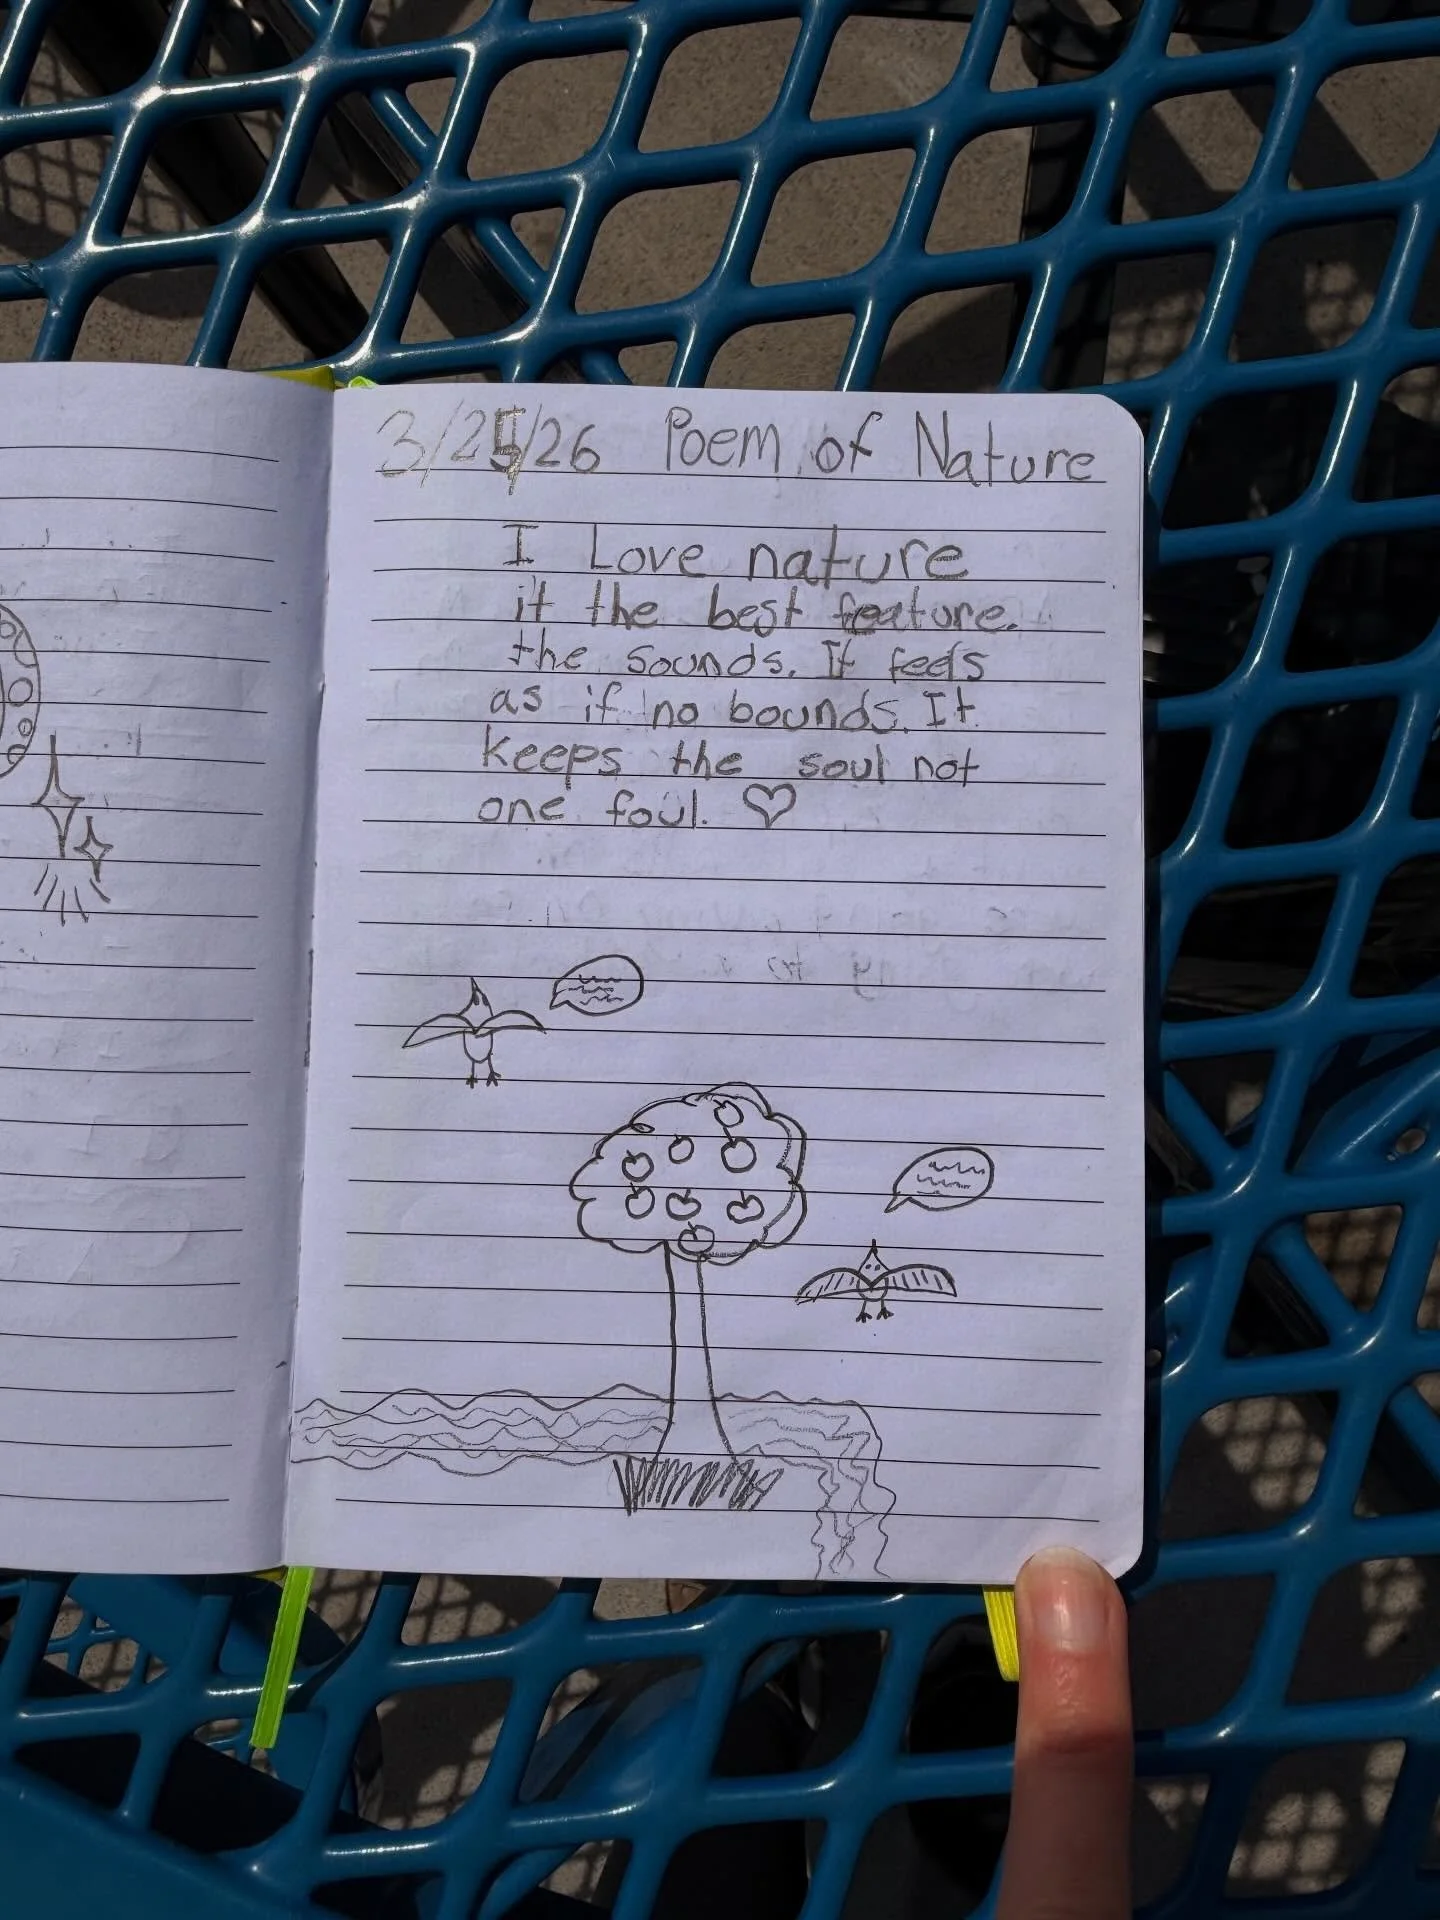 3/25/26 Poem of Nature
I Love nature
it the best feature.
the sounds. It feels
as if no bounds. It
keeps the soul not
one foul. ♡